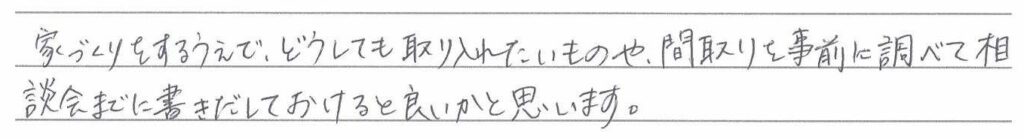 家づくりをするうえで、どうしても取り入れたいものや、間取りを事前に調べて相
談会までに書きだしておけると良いかと思います。